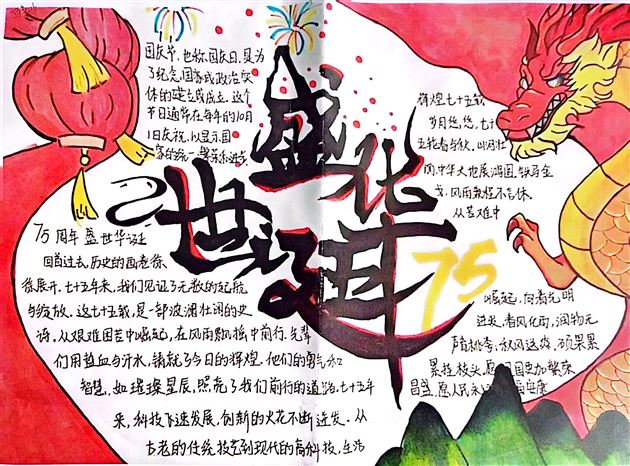 国庆节,也称国庆日,是为
了纪念国家或政治实
体的建立或成立。这个
节日通常在每年的10月
1日庆祝,以显示国
家的统一、繁荣和进步
盛世华诞
75
辉煌七十五载
岁月悠悠,七十
五轮春与秋,山河壮
阔中华大地展鸿图,铁马金
戈,风雨兼程不言休
从苦难中
崛起,向着光明
进发,春风化雨,润物无
声
桃李,秋风送爽,硕果累
累挂枝头,愿
国更加繁荣
昌盛,愿人民永远
康
75周年盛世华诞
回首过去,历史的画卷徐
徐展开,七十五年来,我们见证了无数的起航
与绽放。这七十五载,是一部波澜壮阔的史
诗,从艰难困苦中崛起,在风雨飘摇中前行,先辈
们用热血与汗水,铸就了今日的辉煌。他们的勇气和
智慧,如璀璨星辰,照亮了我们前行的道路。七十五年
来,科技飞速发展,创新的火花不断迸发。从
古老的传统技艺到现代的高科技,生活